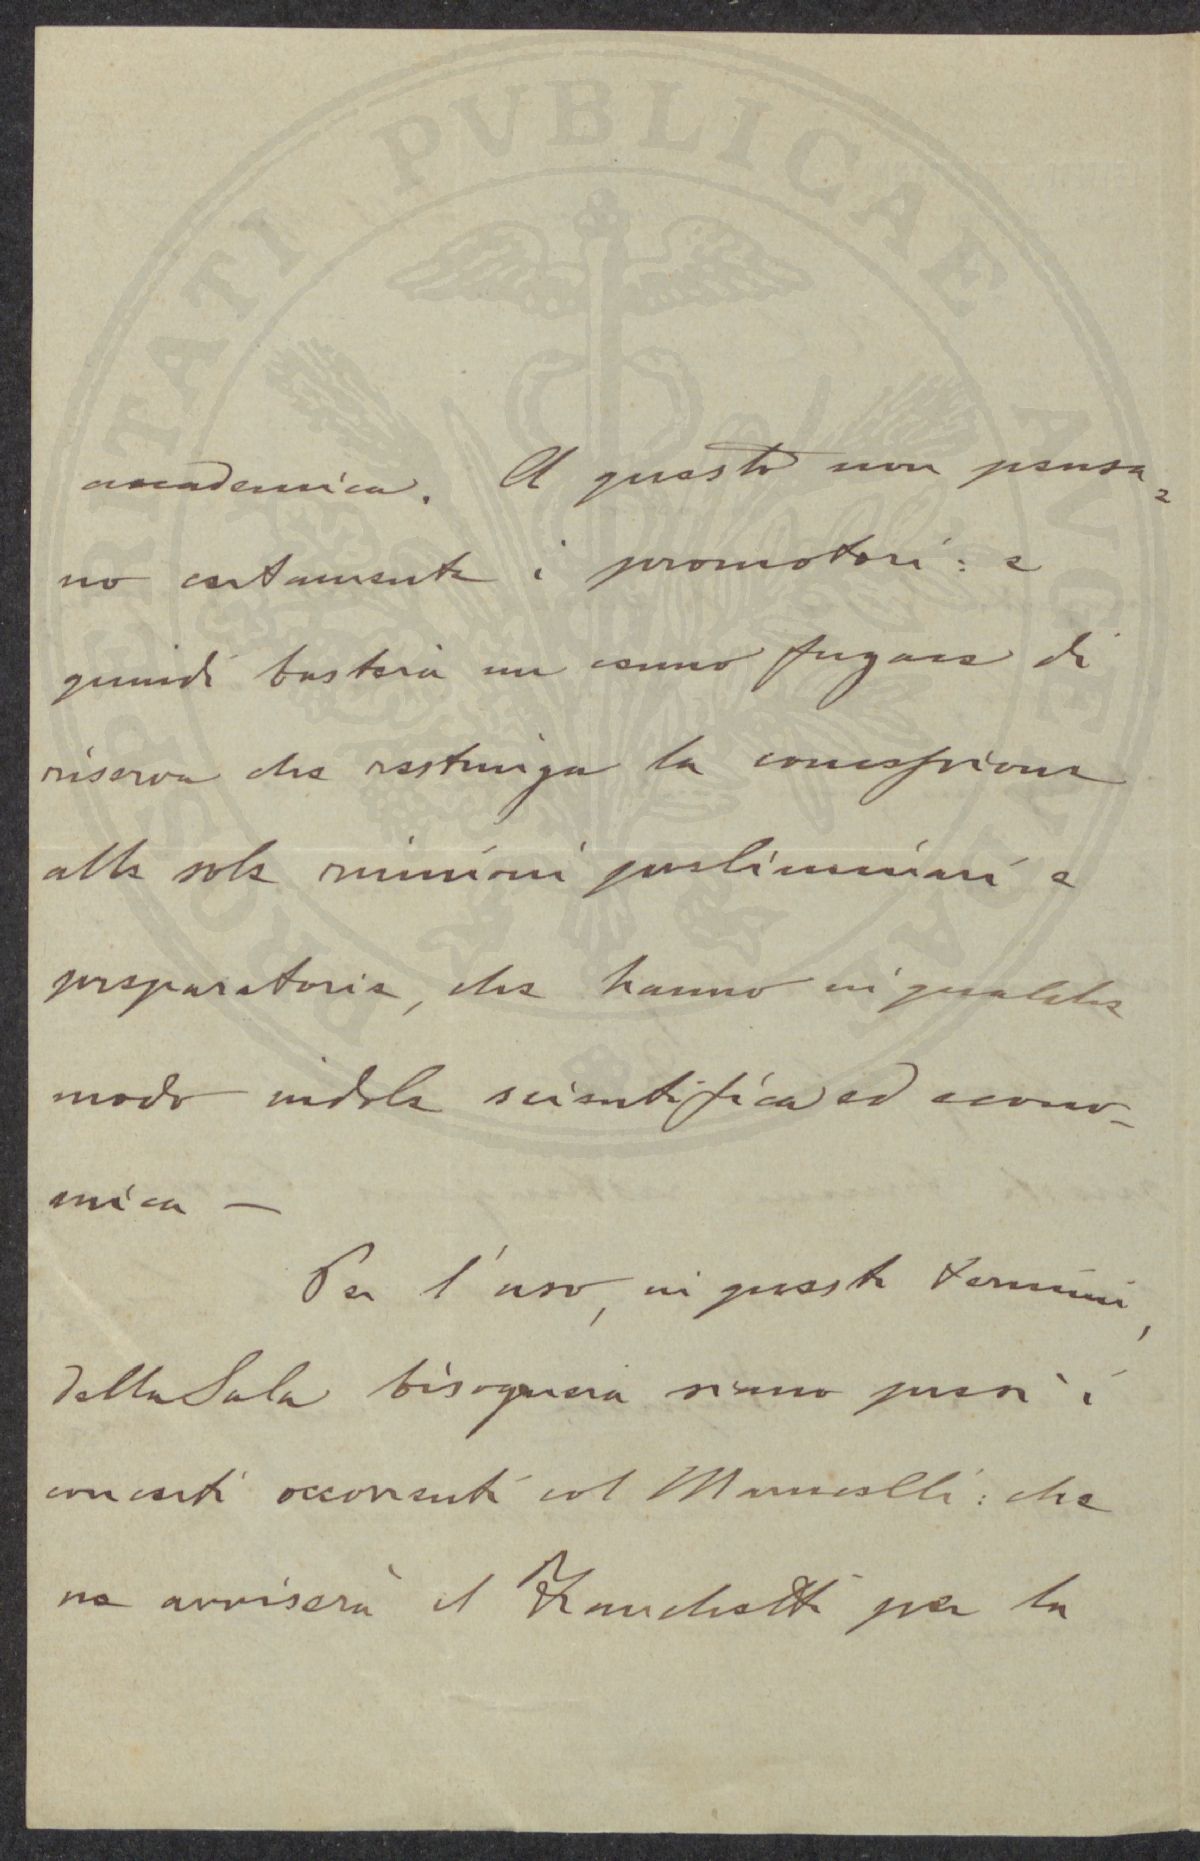 PROSPERITATI PVBLICAE AVGENDAE
accademica. A questo non pensa=
no certamente i promotori: e
quindi basterà un cenno fugace di
riserva che restringa la concessione
alle sole riunioni preliminari e
preparatorie, che hanno in qualche
modo indole scientifica ed econo-
mica —
Per l'uso, in questi termini,
della Sala bisognerà siano presi i
concerti occorrenti col Mancelli: che
ne avviserà il Zanchetti per la